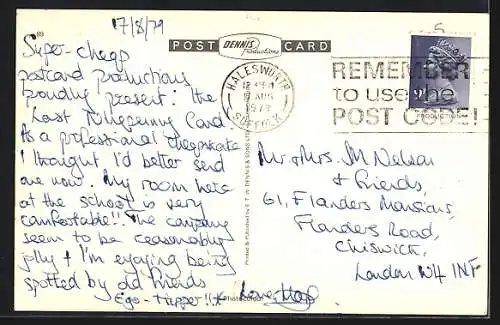 17/8/79
Super-cheap
postcard productions
proudly present: The
Last Tuppenny Card.
As a professional cheapskate
I thought I'd better send
one now. My room here
at the school is very
comfortable!! The company
seem to be reasonably
jolly & I'm enjoying being
spotted by old friends
Ego-tripper!!
Love,
POST DENNIS Productions CARD
HALESWORTH
17 AUG
1979
SUFFOLK
REMEMBER
to use the
POST CODE!
Printed & Published by E. T. W. DENNIS & SONS LTD
Mr & Mrs. M Nelson
& Friends,
61, Flanders Mansions,
Flanders Road,
Chiswick,
London W4 1NF